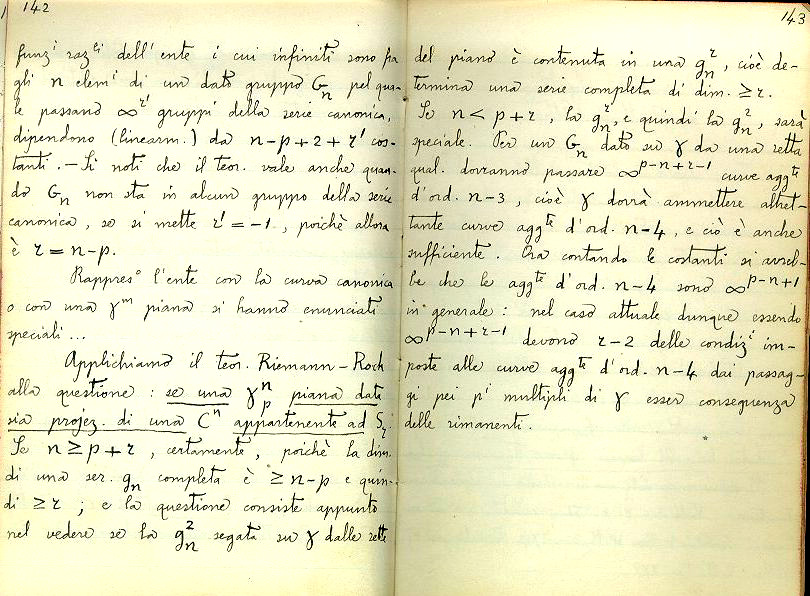 142
funz.i raz.li dell'ente i cui infiniti sono fra
gli n elem.i di un dato gruppo Gₙ pel qua-
le passano ∞^r' gruppi della serie canonica,
dipendono (linearm.) da n-p+2+r' cos-
tanti. – Si noti che il teor. vale anche quan-
do Gₙ non sta in alcun gruppo della serie
canonica, se si mette r' = -1, poichè allora
è r = n-p.
Rappres.o l'ente con la curva canonica
o con una γᵐ piana si hanno enunciati
speciali ...
Applichiamo il teor. Riemann-Roch
alla questione: se una γⁿₚ piana data
sia projez. di una Cⁿ appartenente ad Sᵣ.
Se n ≥ p+r, certamente, poichè la dim.
di una ser. gₙ completa è ≥ n-p e quin-
di ≥ r; e la questione consiste appunto
nel vedere se la g²ₙ segata su γ dalle rette
143
del piano è contenuta in una gʳₙ, cioè de-
termina una serie completa di dim. ≥ r.
Se n < p+r, la gʳₙ, e quindi la g²ₙ, sarà
speciale. Per un Gₙ dato su γ da una retta
qual. dovranno passare ∞^p-n+r-1 curve agg.te
d'ord. n-3, cioè γ dovrà ammettere altret-
tante curve agg.te d'ord. n-4, e ciò è anche
sufficiente. Ora contando le costanti si avreb-
be che le agg.te d'ord. n-4 sono ∞^p-n+1
in generale: nel caso attuale dunque essendo
∞^p-n+r-1 devono r-2 delle condiz.i im-
poste alle curve agg.te d'ord. n-4 dai passag-
gi pei p.i multipli di γ esser conseguenza
delle rimanenti.